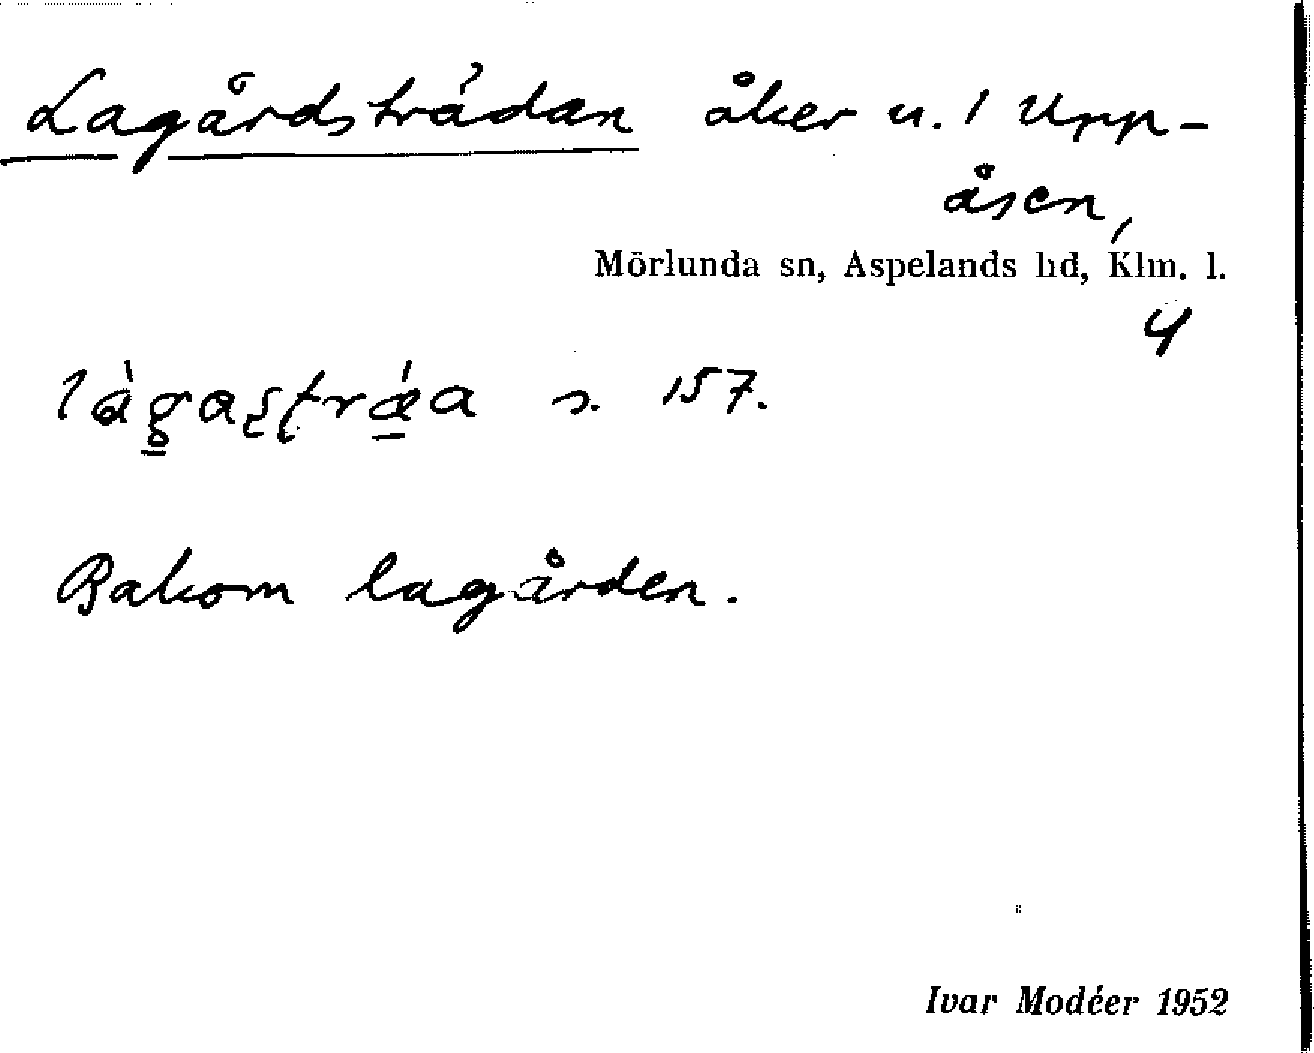 Lagårdsträdan åker u. 1 Upp-
åsen,
Mörlunda sn, Aspelands hd, Klm. l.
4
làgaʂʈrǽa s. 157.
Bakom lagården.
Ivar Modéer 1952